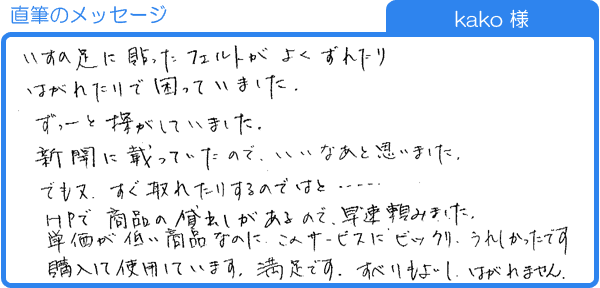 直筆のメッセージ
kako 様
いすの足に貼ったフェルトがよくずれたり
はがれたりで困っていました。
ずっーと探がしていました。
新聞に載っていたので、いいなあと思いました。
でも又、すぐ取れたりするのではと……
HPで商品の貸出しがあるので、早速頼みました。
単価が低い商品なのに、このサービスにビックリ、うれしかったです
購入して使用しています。満足です。すべりもよいし、はがれません。